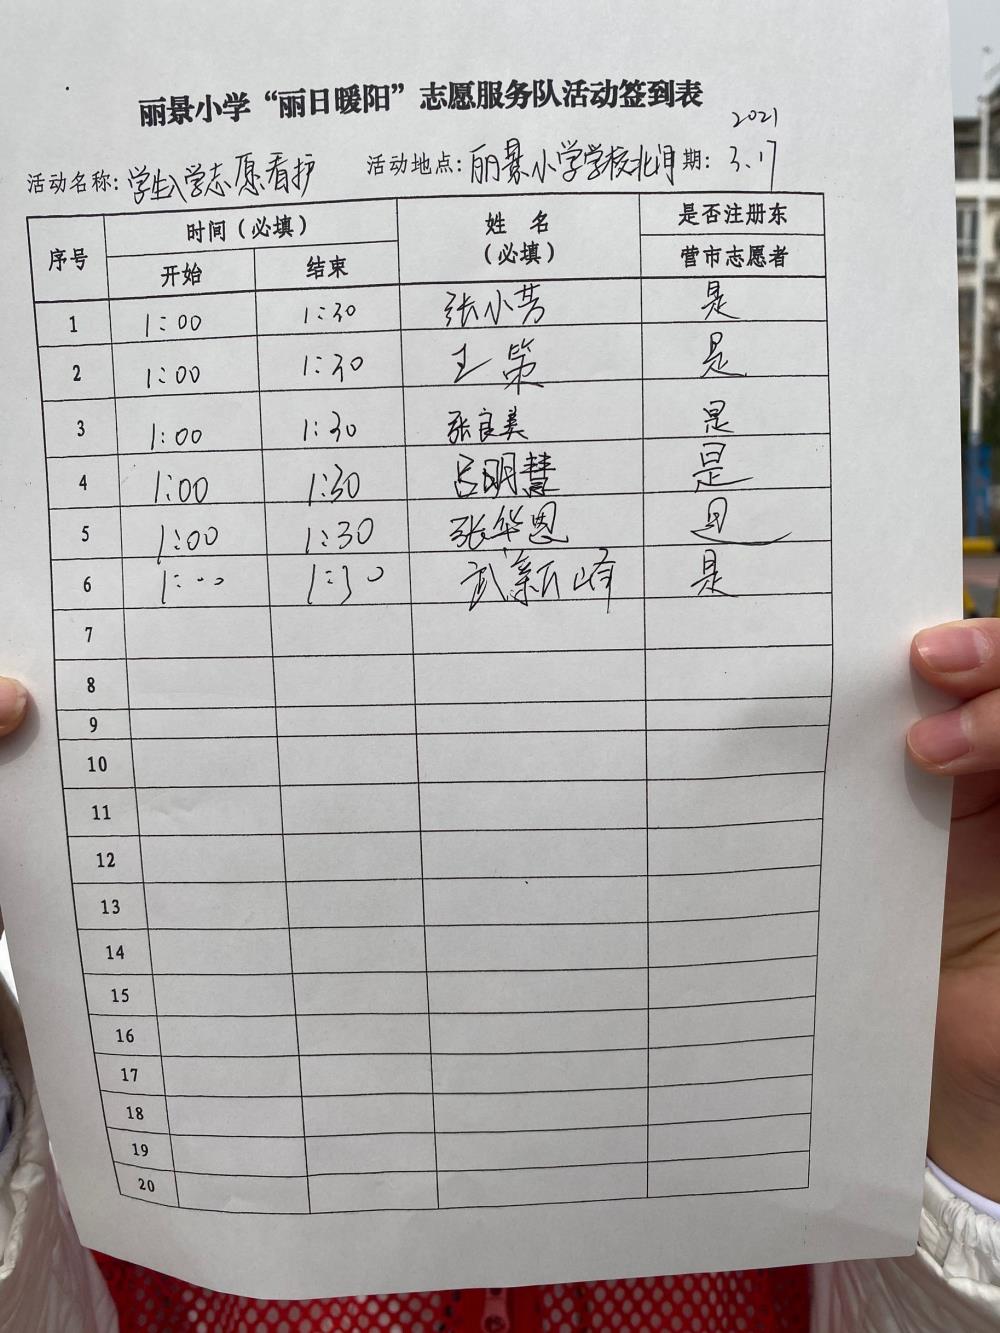 丽景小学“丽日暖阳”志愿服务队活动签到表
2021
活动名称:学生入学志愿看护 活动地点:丽景小学学校北门 期:3.17
序号 时间(必填) 姓名(必填) 是否注册东营市志愿者
开始 结束
1 1:00 1:30 张小芳 是
2 1:00 1:30 王策 是
3 1:00 1:30 张良美 是
4 1:00 1:30 吕明慧 是
5 1:00 1:30 张华恩 是
6 1:00 1:30 武新峰 是
7
8
9
10
11
12
13
14
15
16
17
18
19
20